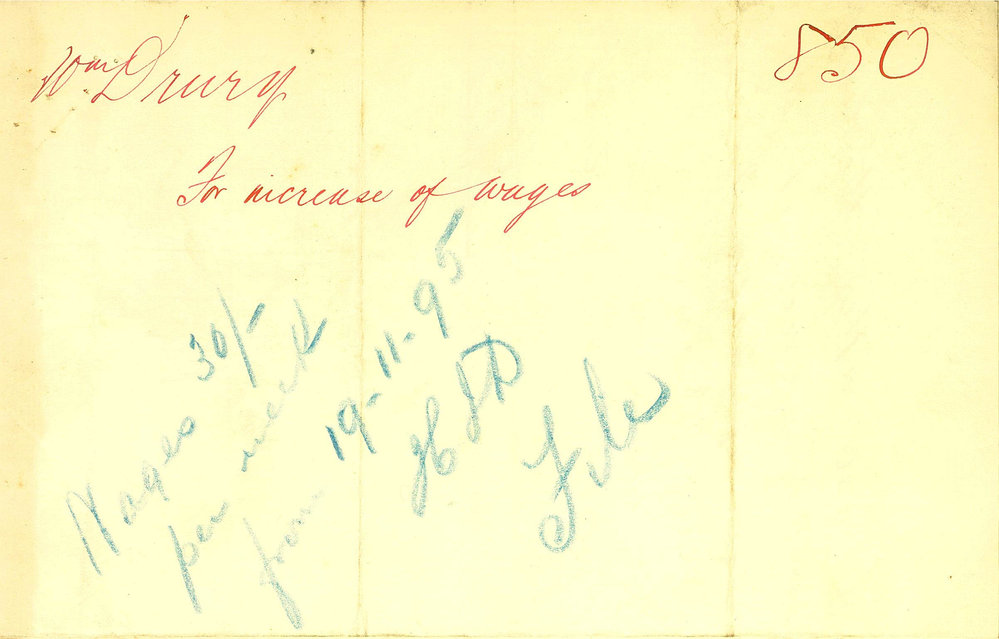 850
Wm Drury
For increase of wages
Wages 30/-
per week
from 19-11-95
File